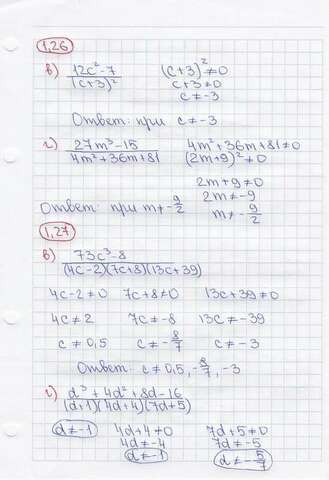 1,26
в) 12c²-7 / (c+3)²    (c+3)² ≠ 0
c+3 ≠ 0
c ≠ -3
Ответ: при c ≠ -3
г) 27m³-15 / 4m²+36m+81    4m²+36m+81 ≠ 0
(2m+9)² ≠ 0
2m+9 ≠ 0
2m ≠ -9
Ответ: при m ≠ -9/2    m ≠ -9/2
1,27
в) 73c³-8 / (4c-2)(7c+8)(13c+39)
4c-2 ≠ 0    7c+8 ≠ 0    13c+39 ≠ 0
4c ≠ 2    7c ≠ -8    13c ≠ -39
c ≠ 0,5    c ≠ -8/7    c ≠ -3
Ответ: c ≠ 0,5, -8/7, -3
г) d³+4d²+8d-16 / (d+1)(4d+4)(7d+5)
d ≠ -1    4d+4 ≠ 0    7d+5 ≠ 0
4d ≠ -4    7d ≠ -5
d ≠ -1    d ≠ -5/7